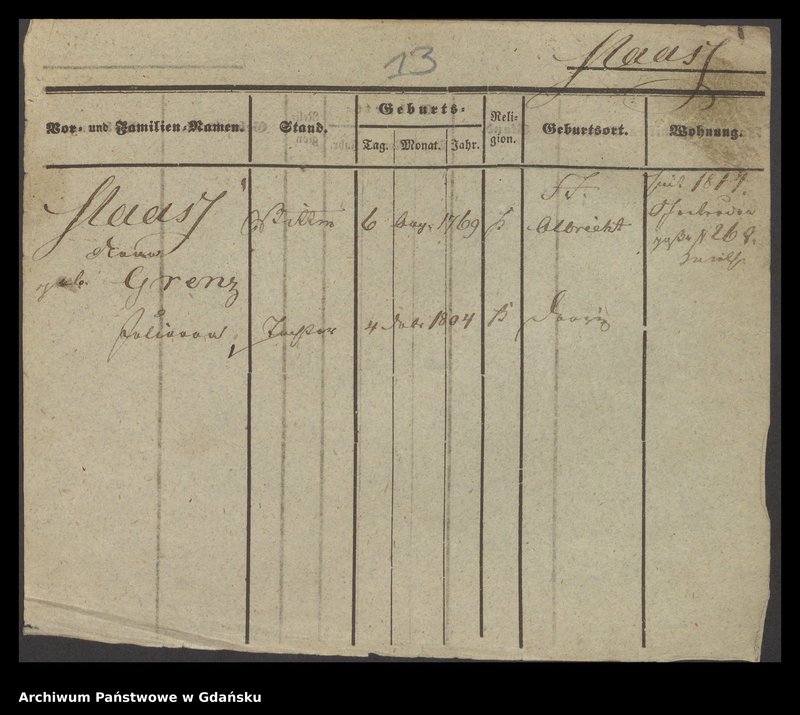 13
Maass
Vor- und Familien-Namen.
Stand.
Geburts-
Tag.
Monat.
Jahr.
Reli-
gion.
Geburtsort.
Wohnung.
Maass
Wittwe
6 Aug. 1769
St.
Albrecht
seit 1817.
No 268.
geb. Grenz
Tochter
4 1804
Danzig
Archiwum Państwowe w Gdańsku